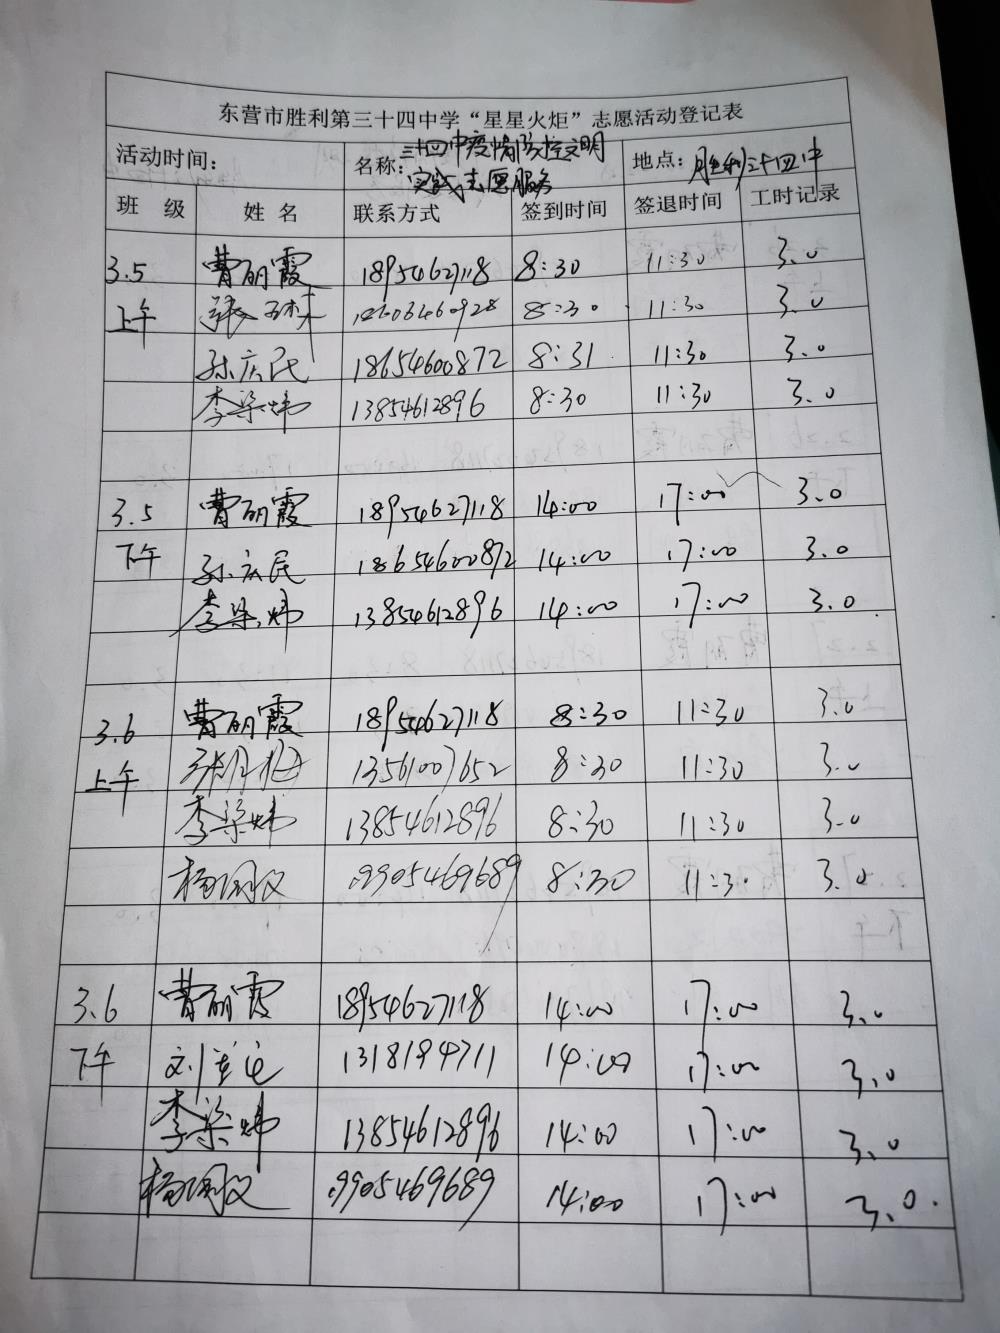 东营市胜利第三十四中学“星星火炬”志愿活动登记表
活动时间： 名称：三十四中疫情防控文明实践志愿服务 地点：胜利三十四中
班 级 姓 名 联系方式 签到时间 签退时间 工时记录
3.5 曹丽霞 18954627118 8:30 11:30 3.0
上午 8:30 11:30 3.0
孙庆民 18654600872 8:31 11:30 3.0
李梁炜 13854612896 8:30 11:30 3.0
3.5 曹丽霞 18954627118 14:00 17:00 3.0
下午 孙庆民 18654600872 14:00 17:00 3.0
李梁炜 13854612896 14:00 17:00 3.0
3.6 曹丽霞 18954627118 8:30 11:30 3.0
上午 13561007652 8:30 11:30 3.0
李梁炜 13854612896 8:30 11:30 3.0
19905469689 8:30 11:30 3.0
3.6 曹丽霞 18954627118 14:00 17:00 3.0
下午 14:00 17:00 3.0
李梁炜 13854612896 14:00 17:00 3.0
19905469689 14:00 17:00 3.0